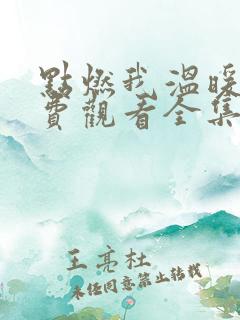 點燃我溫暖
費觀看全集
王亮杜
未经同意禁止转载